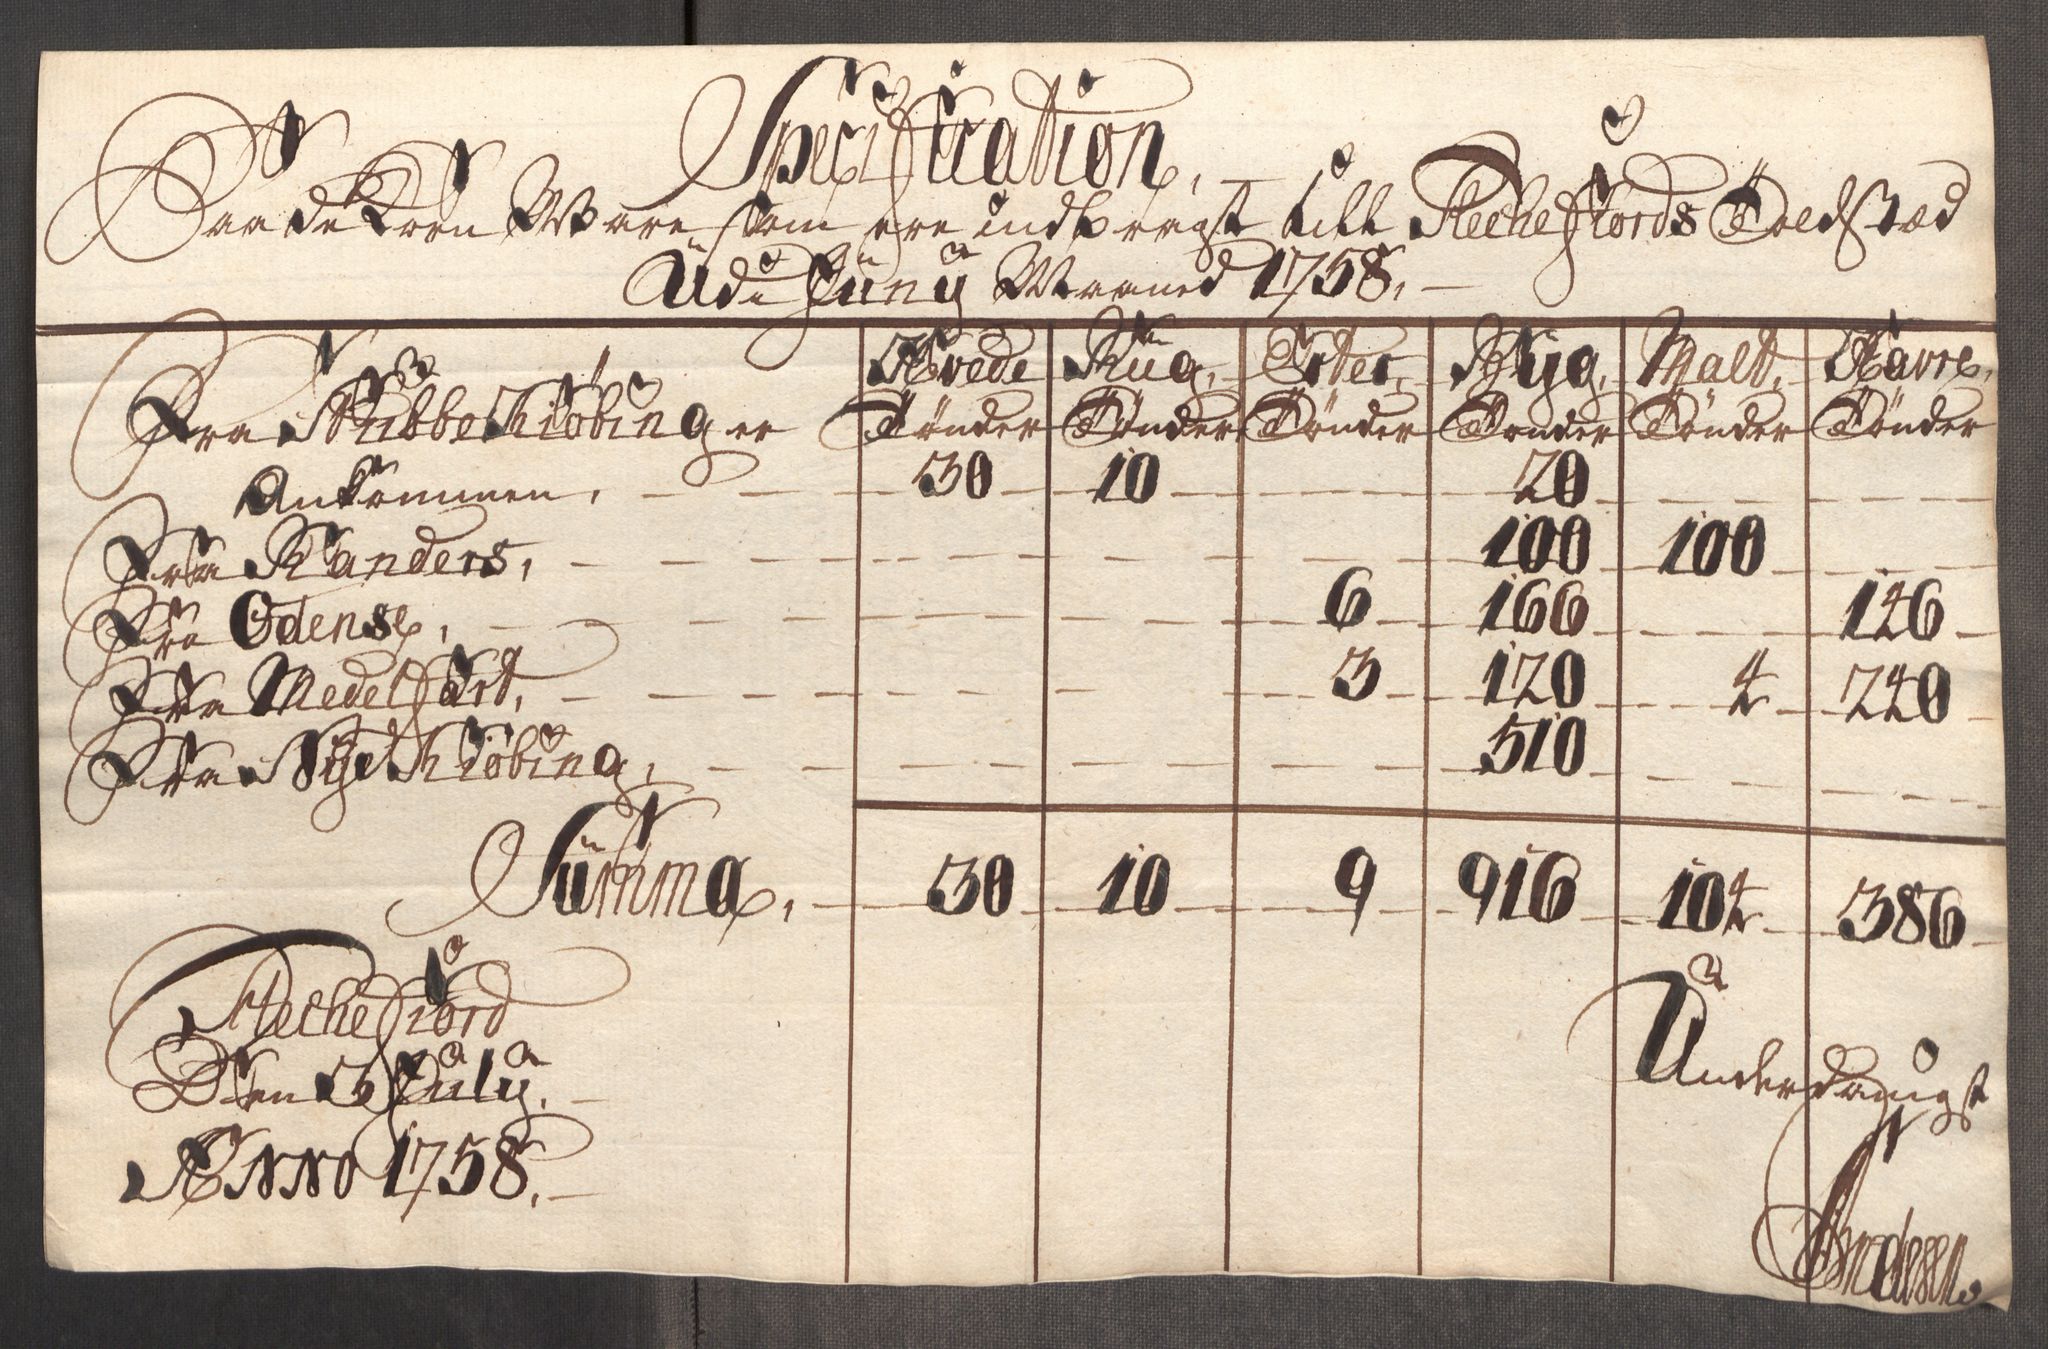 Specification,
Paa de Korn Ware som ere indbragt till Flechefiords Toldstæd
Udi Juny Maaned 1758.
Hvede Rug, Erter, Byg, Malt, Havre,
Fra Stubbe Kiøbing er Tønder Tønder Tønder Tønder Tønder Tønder
Ankommen, 30 10 20
Fra Randers, 100 100
Fra Odense, 6 166 146
Fra Medelfart, 3 120 4 240
Fra Nye Kiøbing, 510
Summa, 30 10 9 916 104 386
Flechefiord
Den 3 July,
Anno 1758.
Underdanigst